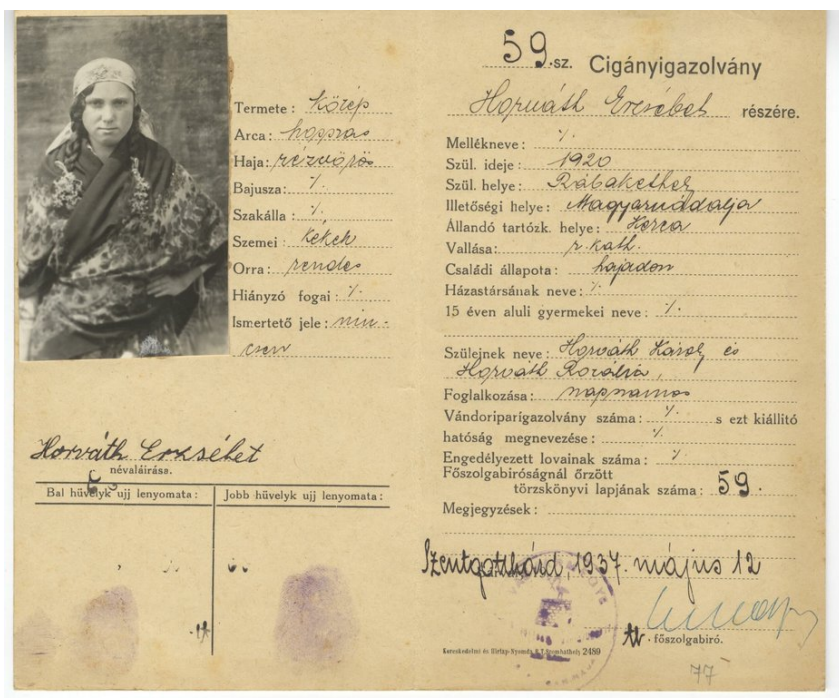 Termete: közép
Arca: hosszas
Haja: rézvörös
Bajusza: ·/.
Szakálla: ·/.
Szemei: kékek
Orra: rendes
Hiányzó fogai: ·/.
Ismertető jele: nin-
csen
Horváth Erzsébet
névaláirása.
Bal hüvelyk ujj lenyomata:
Jobb hüvelyk ujj lenyomata:
59.sz. Cigányigazolvány
Horváth Erzsébet részére.
Mellékneve: ·/.
Szül. ideje: 1920
Szül. helye: Rábakethely
Illetőségi helye: Magyarnádalja
Állandó tartózk. helye:
Vallása: r. kath.
Családi állapota: hajadon
Házastársának neve: ·/.
15 éven aluli gyermekei neve: ·/.
Szülejnek neve: Horváth Károly és
Horváth Rozália,
Foglalkozása: napszámos
Vándoriparigazolvány száma: ·/. s ezt kiállitó
hatóság megnevezése: ·/.
Engedélyezett lovainak száma: ·/.
Főszolgabiróságnál őrzött
törzskönyvi lapjának száma: 59.
Megjegyzések:
Szentgotthárd, 1937. május 12
főszolgabiró.
Kereskedelmi és Hirlap-Nyomda R.T. Szombathely 2489
77